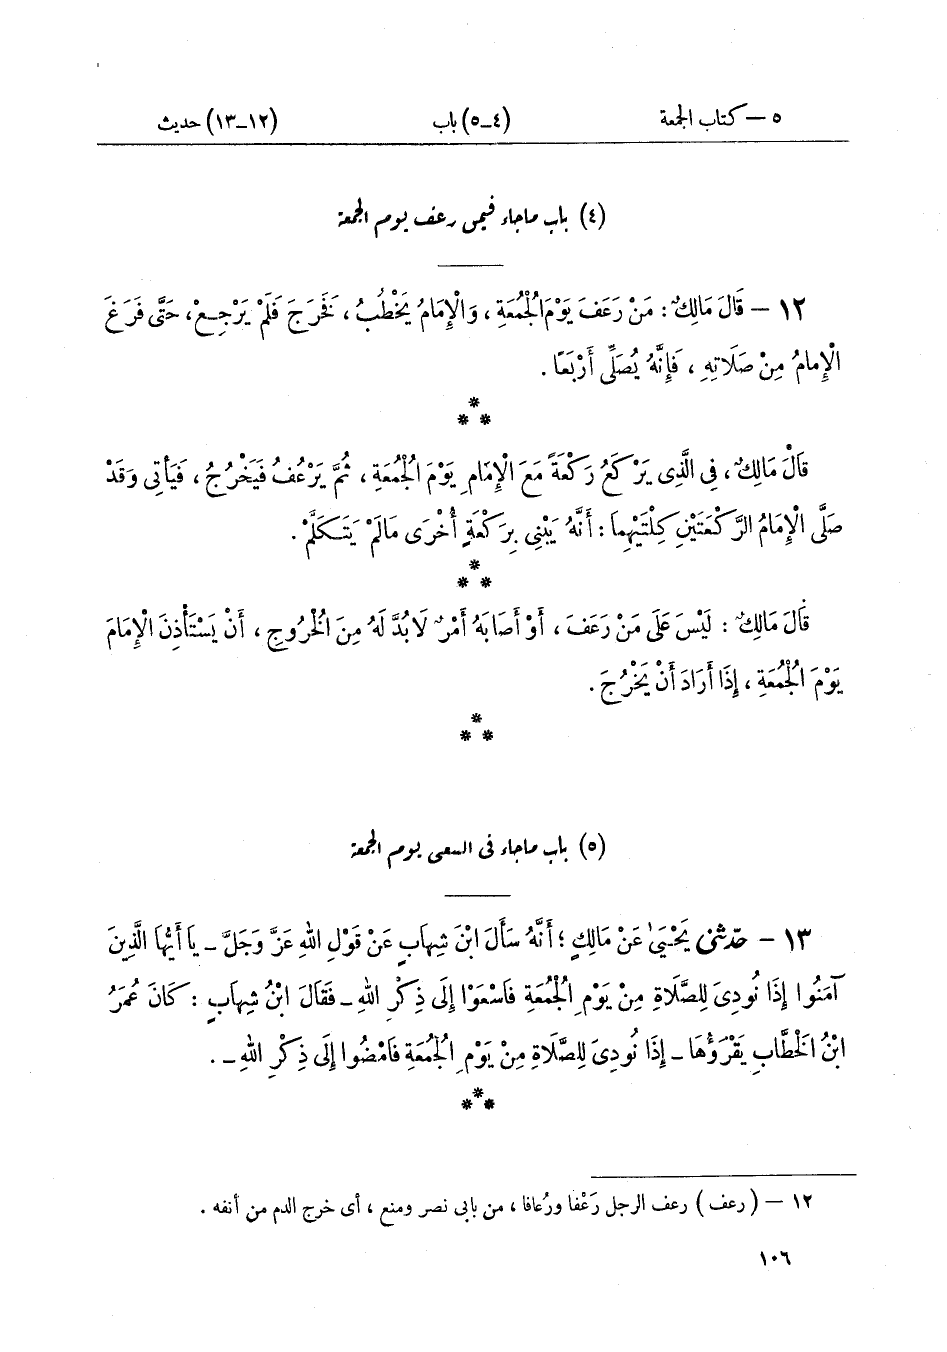 ٥ – كتاب الجمعة (٤–٥) باب (١٢–١٣) حديث
(٤) باب ماجاء فيمن رعف يوم الجمعة
١٢ – قَالَ مَالِكٌ : مَنْ رَعَفَ يَوْمَ الْجُمُعَةِ ، وَالْإِمَامُ يَخْطُبُ ، فَخَرَجَ فَلَمْ يَرْجِعْ ، حَتَّى فَرَغَ
الْإِمَامُ مِنْ صَلَاتِهِ ، فَإِنَّهُ يُصَلِّى أَرْبَعًا .
***
قَالَ مَالِكٌ ، فِى الَّذِى يَرْكَعُ رَكْعَةً مَعَ الْإِمَامِ يَوْمَ الْجُمُعَةِ ، ثُمَّ يَرْعُفُ فَيَخْرُجُ ، فَيَأْتِى وَقَدْ
صَلَّى الْإِمَامُ الرَّكْعَتَيْنِ كِلْتَيْهِمَا : أَنَّهُ يَبْنِى بِرَكْعَةٍ أُخْرَى مَالَمْ يَتَكَلَّمْ .
***
قَالَ مَالِكٌ : لَيْسَ عَلَى مَنْ رَعَفَ ، أَوْ أَصَابَهُ أَمْرٌ لَا بُدَّ لَهُ مِنَ الْخُرُوجِ ، أَنْ يَسْتَأْذِنَ الْإِمَامَ
يَوْمَ الْجُمُعَةِ ، إِذَا أَرَادَ أَنْ يَخْرُجَ .
***
(٥) باب ماجاء فى السعى يوم الجمعة
١٣ – حدّثنى يَحْيَىٰ عَنْ مَالِكٍ ؛ أَنَّهُ سَأَلَ ابْنَ شِهَابٍ عَنْ قَوْلِ اللهِ عَزَّ وَجَلَّ – يَا أَيُّهَا الَّذِينَ
آمَنُوا إِذَا نُودِىَ لِلصَّلَاةِ مِنْ يَوْمِ الْجُمُعَةِ فَاسْعَوْا إِلَى ذِكْرِ اللهِ – فَقَالَ ابْنُ شِهَابٍ : كَانَ عُمَرُ
ابْنُ الْخَطَّابِ يَقْرَؤُهَا – إِذَا نُودِىَ لِلصَّلَاةِ مِنْ يَوْمِ الْجُمُعَةِ فَامْضُوا إِلَى ذِكْرِ اللهِ – .
***
١٢ – (رعف) رعف الرجل رَعْفا ورُعافا ، من بابى نصر ومنع ، أى خرج الدم من أنفه .
١٠٦